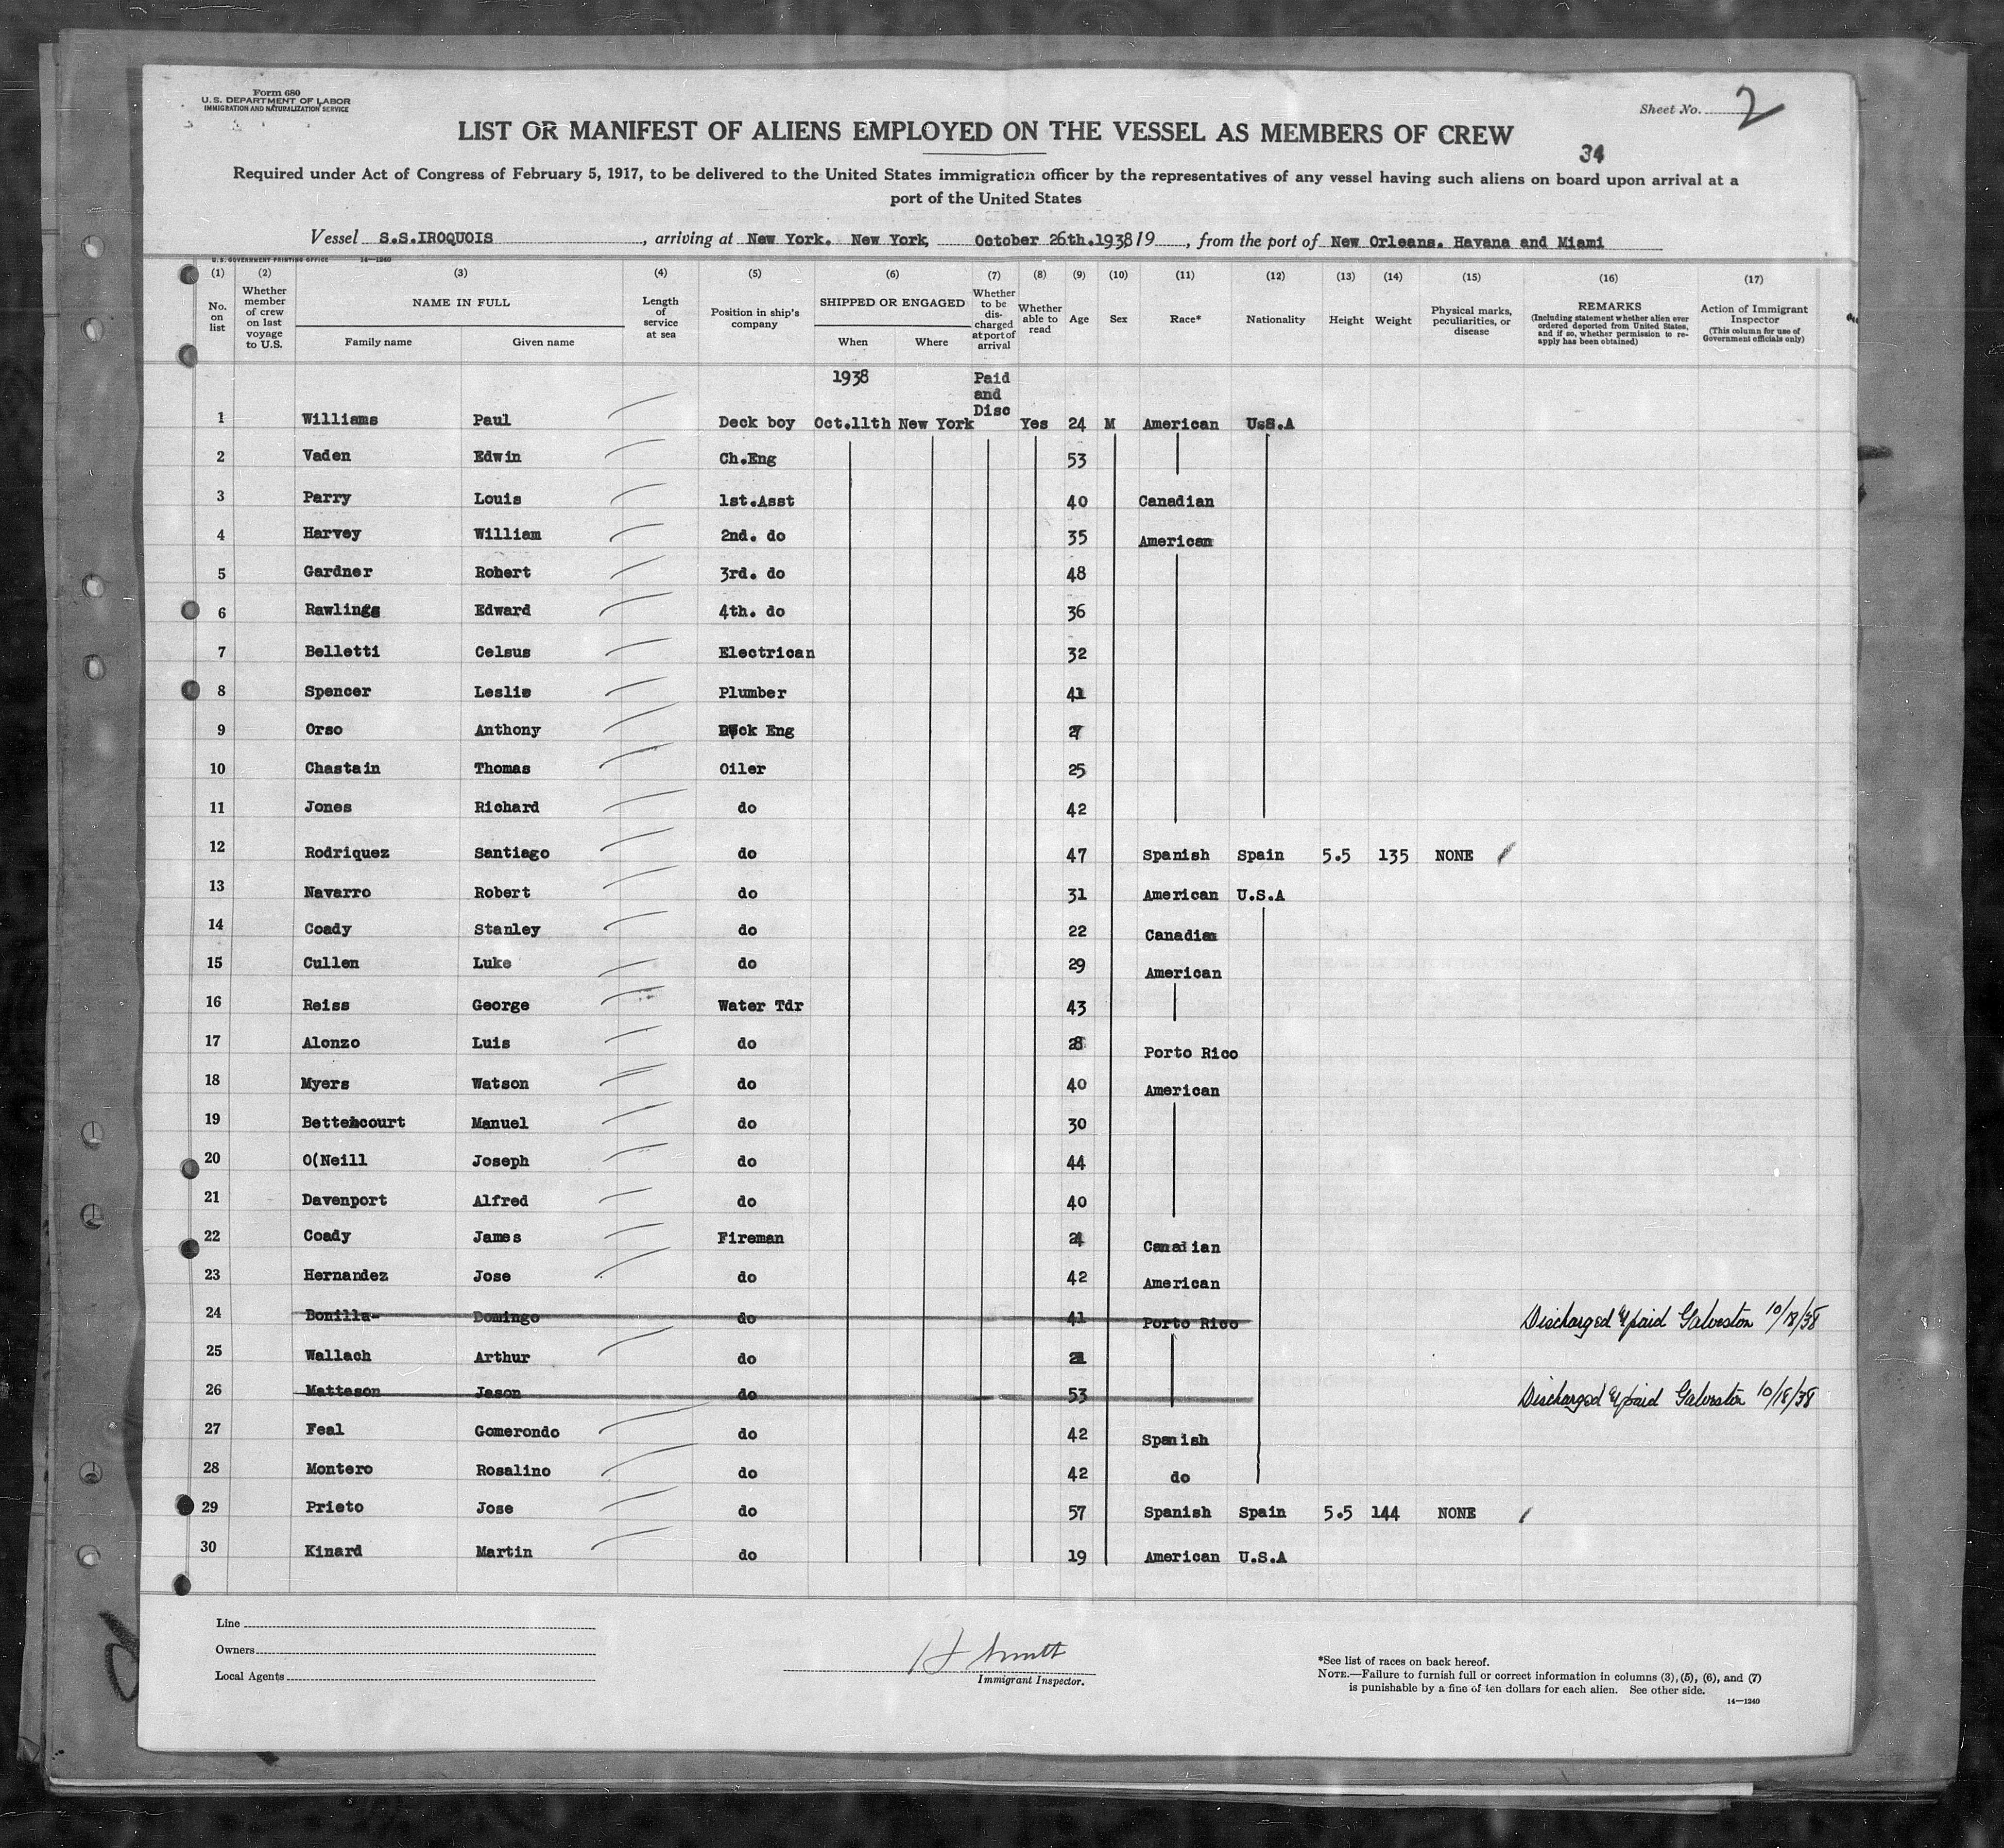 Form 680
U. S. DEPARTMENT OF LABOR
IMMIGRATION AND NATURALIZATION SERVICE
Sheet No. 2
LIST OR MANIFEST OF ALIENS EMPLOYED ON THE VESSEL AS MEMBERS OF CREW
34
Required under Act of Congress of February 5, 1917, to be delivered to the United States immigration officer by the representatives of any vessel having such aliens on board upon arrival at a
port of the United States
Vessel S.S.IROQUOIS, arriving at New York. New York, October 26th.1938 19, from the port of New Orleans. Havana and Miami
U. S. GOVERNMENT PRINTING OFFICE 14—1240
(1) (2) (3) (4) (5) (6) (7) (8) (9) (10) (11) (12) (13) (14) (15) (16) (17)
No. on list
Whether member of crew on last voyage to U.S.
NAME IN FULL
Family name Given name
Length of service at sea
Position in ship's company
SHIPPED OR ENGAGED
When Where
Whether to be discharged at port of arrival
Whether able to read
Age
Sex
Race*
Nationality
Height
Weight
Physical marks, peculiarities, or disease
REMARKS
(Including statement whether alien ever ordered deported from United States, and if so, whether permission to re-apply has been obtained)
Action of Immigrant Inspector
(This column for use of Government officials only)
1938 Paid
and
Disc
1 Williams Paul Deck boy Oct.11th New York Yes 24 M American U.S.A
2 Vaden Edwin Ch.Eng 53
3 Parry Louis 1st.Asst 40 Canadian
4 Harvey William 2nd. do 35 American
5 Gardner Robert 3rd. do 48
6 Rawlings Edward 4th. do 36
7 Belletti Celsus Electrican 32
8 Spencer Leslie Plumber 41
9 Orso Anthony Deck Eng 27
10 Chastain Thomas Oiler 25
11 Jones Richard do 42
12 Rodriquez Santiago do 47 Spanish Spain 5.5 135 NONE
13 Navarro Robert do 31 American U.S.A
14 Coady Stanley do 22 Canadian
15 Cullen Luke do 29 American
16 Reiss George Water Tdr 43
17 Alonzo Luis do 28 Porto Rico
18 Myers Watson do 40 American
19 Bettencourt Manuel do 30
20 O(Neill Joseph do 44
21 Davenport Alfred do 40
22 Coady James Fireman 24 Canadian
23 Hernandez Jose do 42 American
24 Bonilla- Domingo do 41 Porto Rico Discharged & paid Galveston 10/18/38
25 Wallach Arthur do 21
26 Matteson Jason do 53 Discharged & paid Galveston 10/18/38
27 Feal Gomerondo do 42 Spanish
28 Montero Rosalino do 42 do
29 Prieto Jose do 57 Spanish Spain 5.5 144 NONE
30 Kinard Martin do 19 American U.S.A
Line
Owners
Local Agents
Immigrant Inspector.
*See list of races on back hereof.
NOTE.—Failure to furnish full or correct information in columns (3), (5), (6), and (7)
is punishable by a fine of ten dollars for each alien. See other side.
14—1240